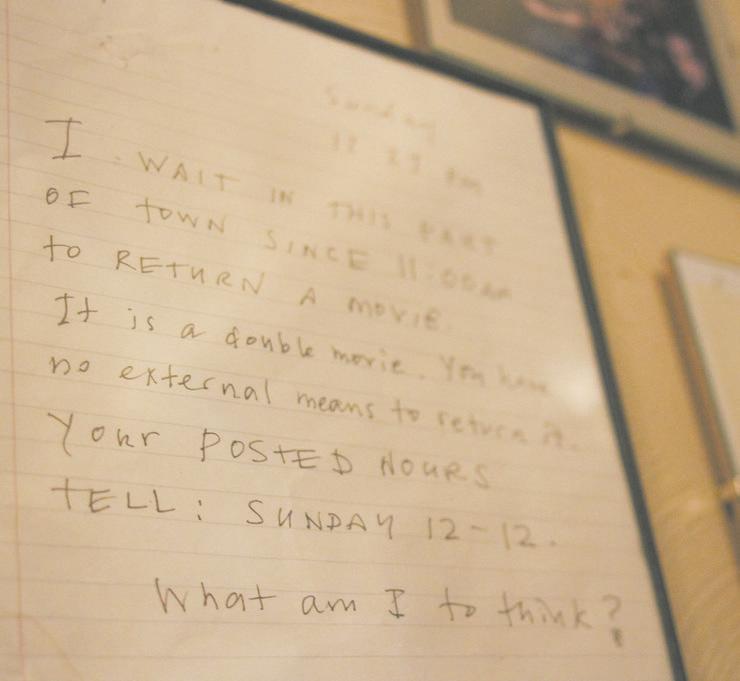 Sunday
12 27 Pm
I WAIT IN THIS PART
OF TOWN SINCE 11:00am
to RETURN A MOVIE.
It is a double movie. You have
no external means to return it.
Your POSTED HOURS
TELL: SUNDAY 12-12.
What am I to think?